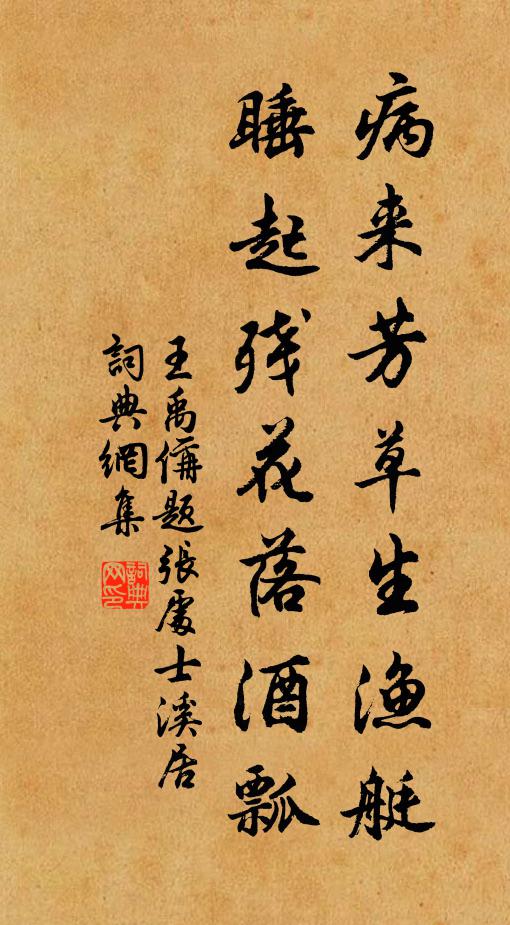 病来芳草生渔艇
睡起残花落酒瓢
王禹偁题張處士溪居
詞典網集
詞典网印